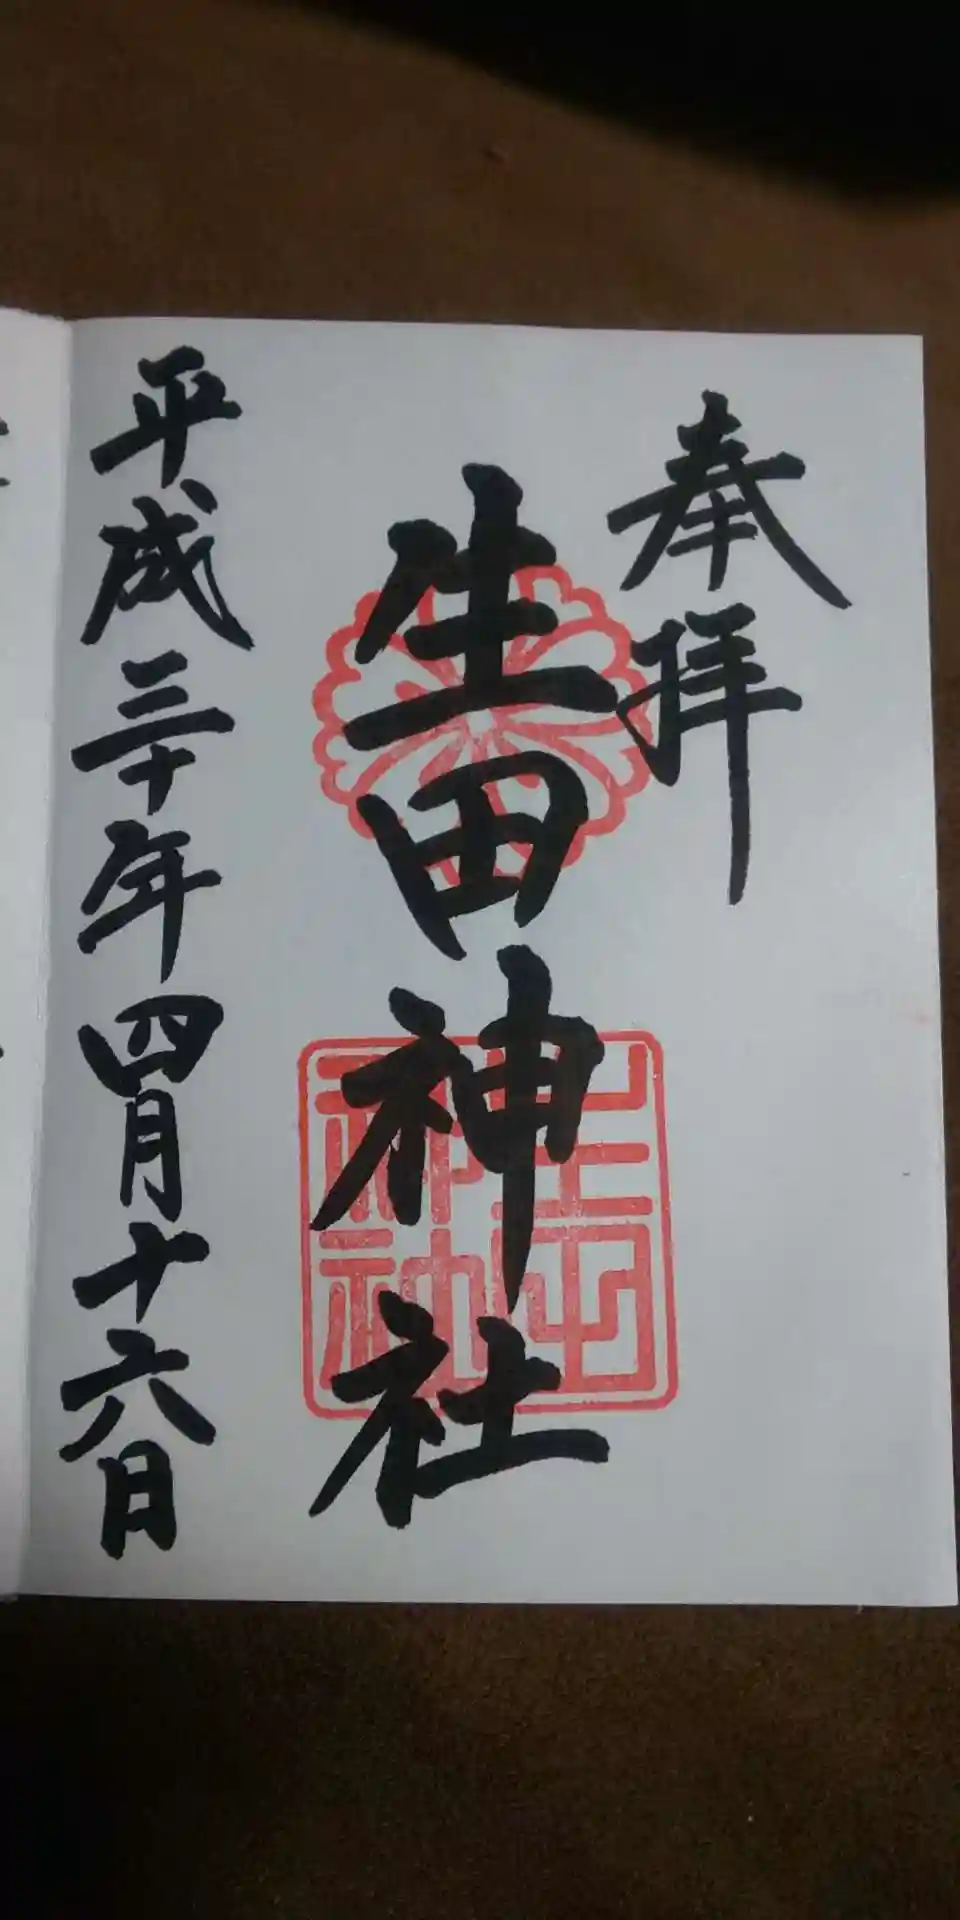 奉拝
生田神社
生田神社
平成三十年四月十六日